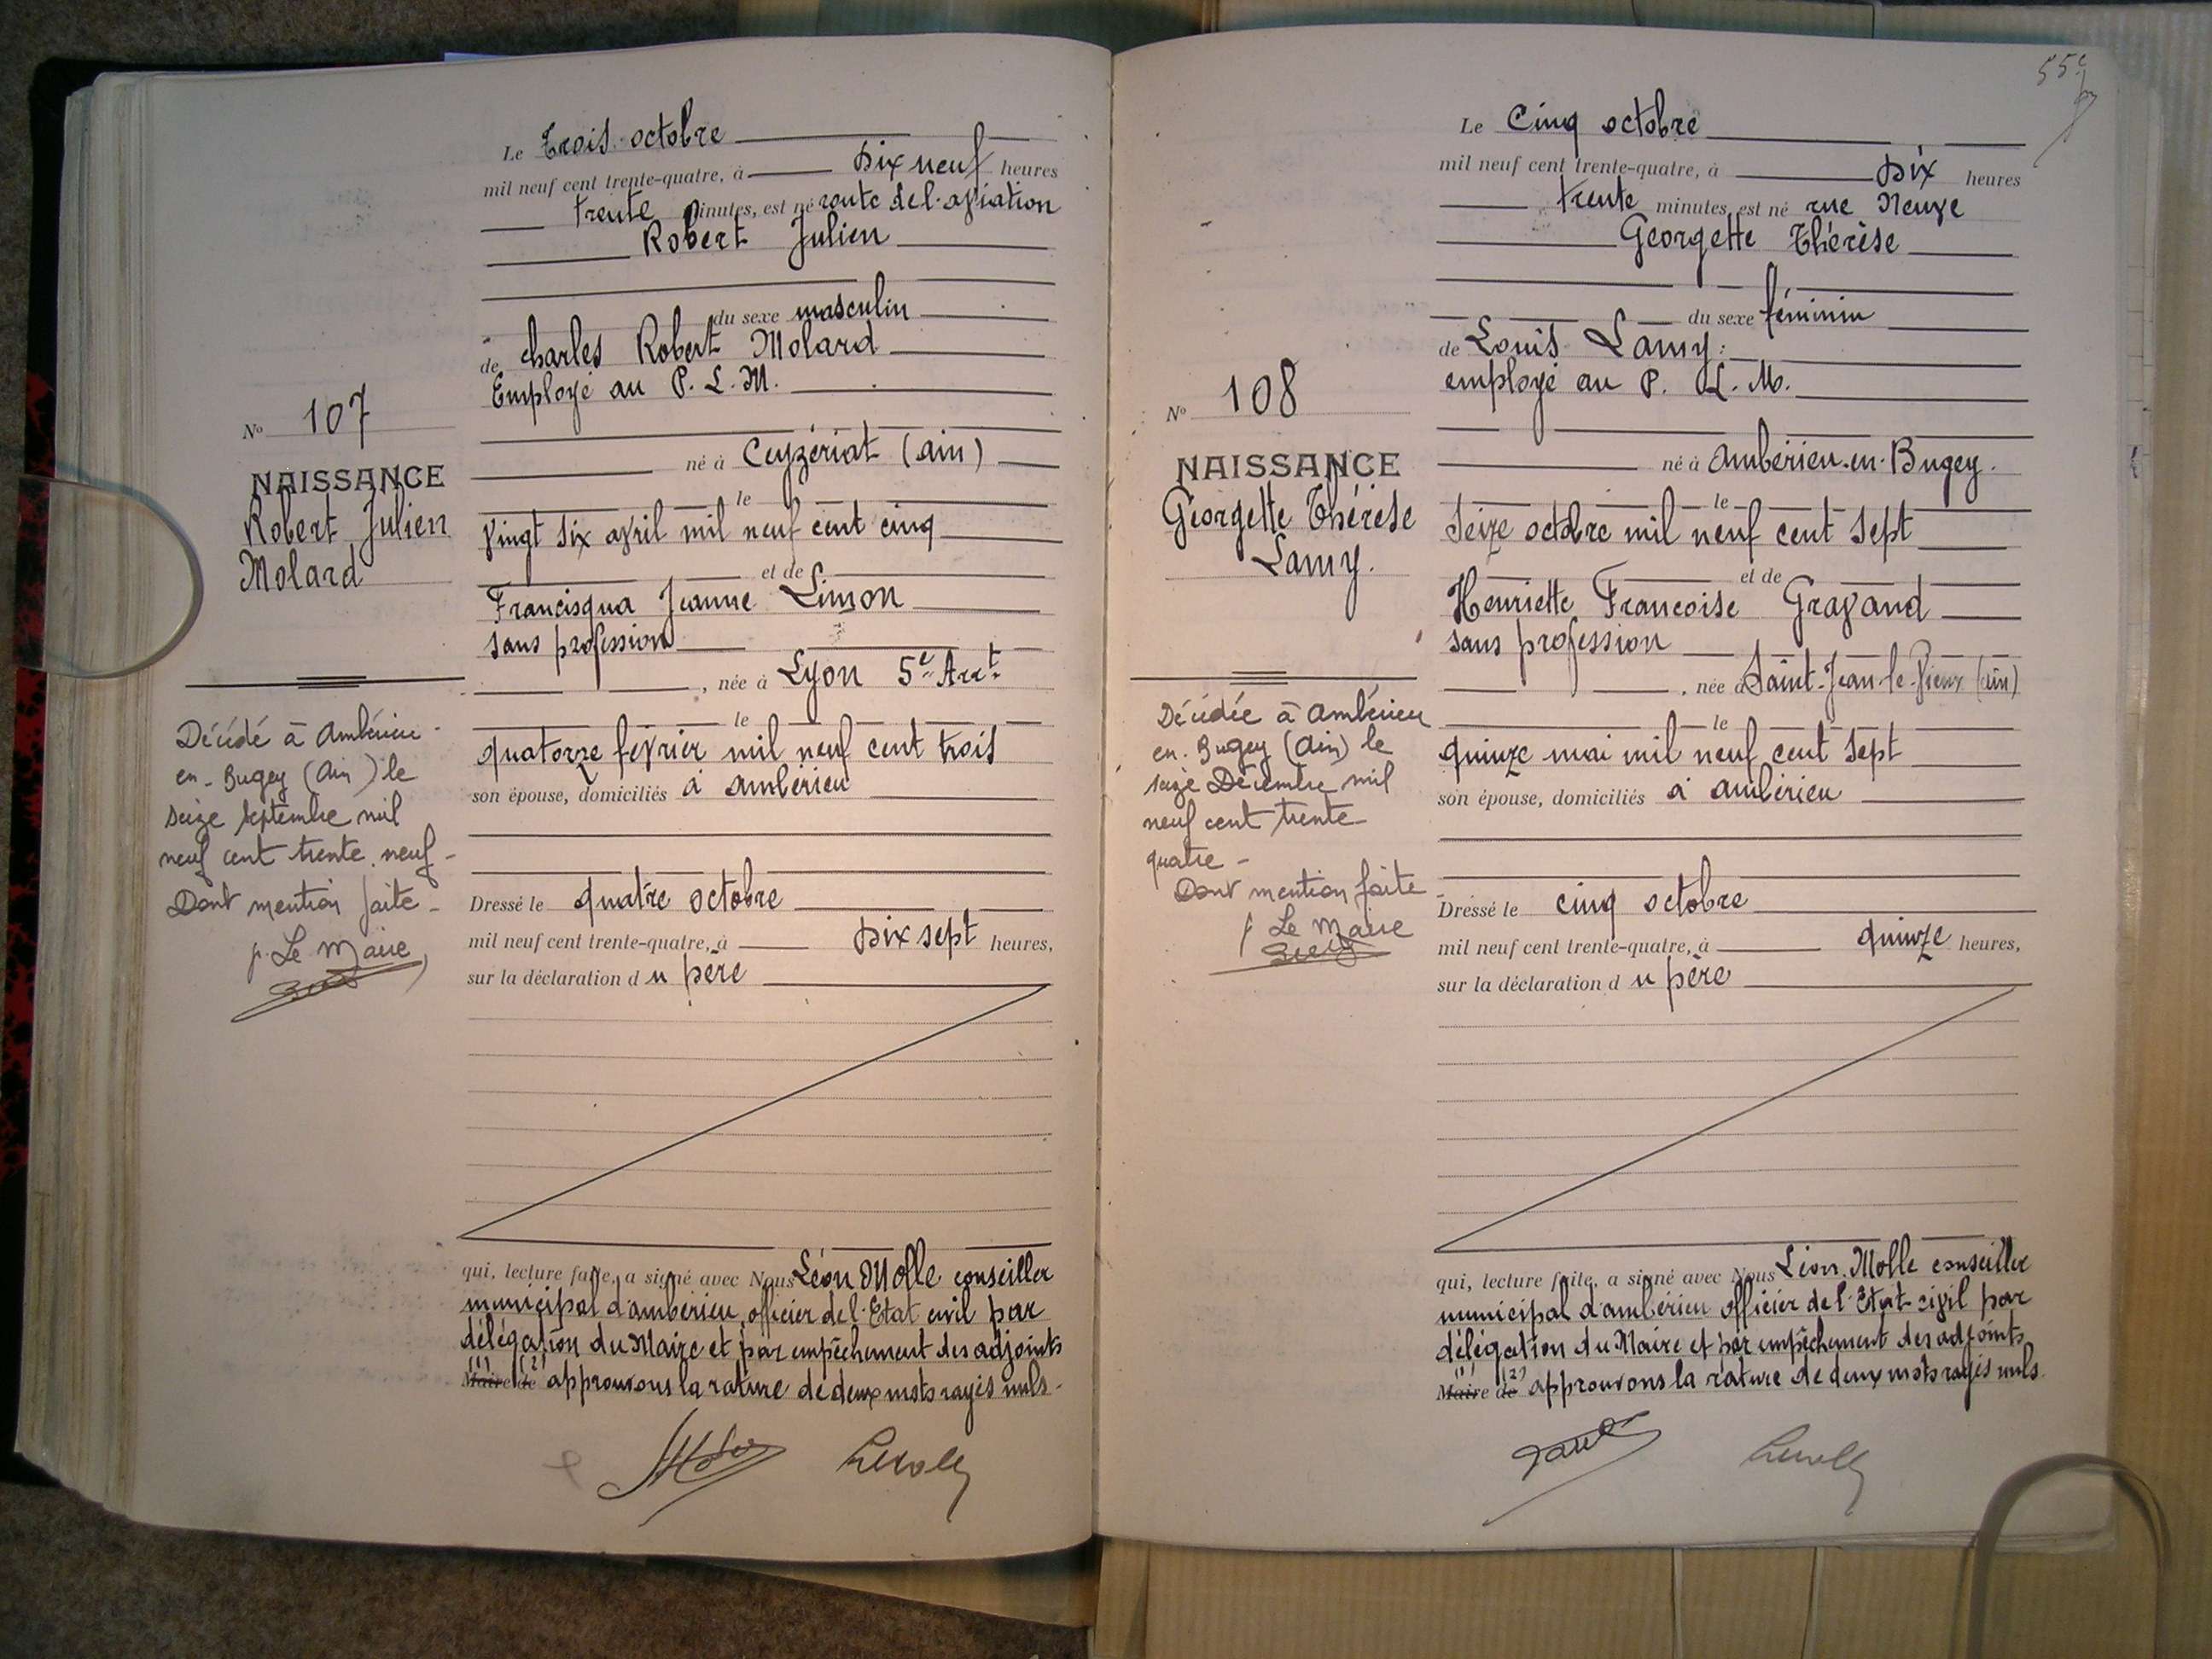 Le Trois octobre
mil neuf cent trente-quatre, à Dix neuf heures
trente minutes, est né route de l'aviation
Robert Julien
du sexe masculin
de Charles Robert Molard
Employé au P. L. M.
né à Ceyzériat (ain)
le
vingt six avril mil neuf cent cinq
et de
Francisqua Jeanne Limon
sans profession
, née à Lyon 5e Arrt
le
quatorze février mil neuf cent trois
son épouse, domiciliés à ambérieu
Dressé le quatre octobre
mil neuf cent trente-quatre, à Dix sept heures,
sur la déclaration du père
qui, lecture faite, a signé avec Nous Léon Molle conseiller
municipal d'ambérieu, officier de l'Etat civil par
délégation du Maire et par empêchement des adjoints
(1) (2)
Maire de approuvons la rature de deux mots rayés nuls.
No 107
NAISSANCE
Robert Julien
Molard
Décédé à Ambérieu-
en-Bugey (Ain) le
seize septembre mil
neuf cent trente neuf-
Dont mention faite-
p. Le Maire
55e
Le Cinq octobre
mil neuf cent trente-quatre, à Dix heures
trente minutes, est né rue Neuve
Georgette Thérèse
du sexe féminin
de Louis Lamy
employé au P. L. M.
né à Ambérieu-en-Bugey.
le
seize octobre mil neuf cent sept
et de
Henriette Francoise Gravand
sans profession
, née à Saint-Jean-le-Vieux (ain)
le
quinze mai mil neuf cent sept
son épouse, domiciliés à ambérieu
Dressé le cinq octobre
mil neuf cent trente-quatre, à quinze heures,
sur la déclaration du père
qui, lecture faite, a signé avec Nous Léon Molle conseiller
municipal d'ambérieu officier de l'Etat civil par
délégation du Maire et par empêchement des adjoints
(1) (2)
Maire de approuvons la rature de deux mots rayés nuls.
No 108
NAISSANCE
Georgette Thérèse
Lamy.
Décédée à Ambérieu
en-Bugey (Ain) le
seize Décembre mil
neuf cent trente
quatre-
Dont mention faite
p Le Maire